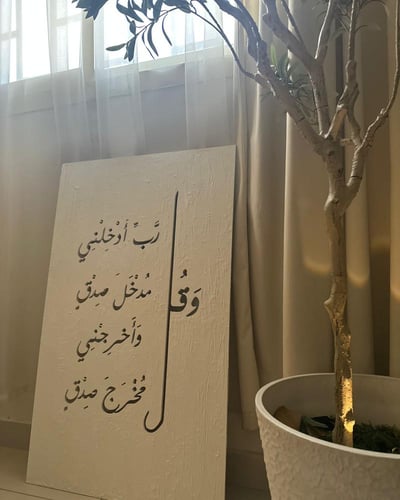 وَقُل
رَّبِّ أَدْخِلْنِي
مُدْخَلَ صِدْقٍ
وَأَخرِجْنِي
مُخْرَجَ صِدْقٍ